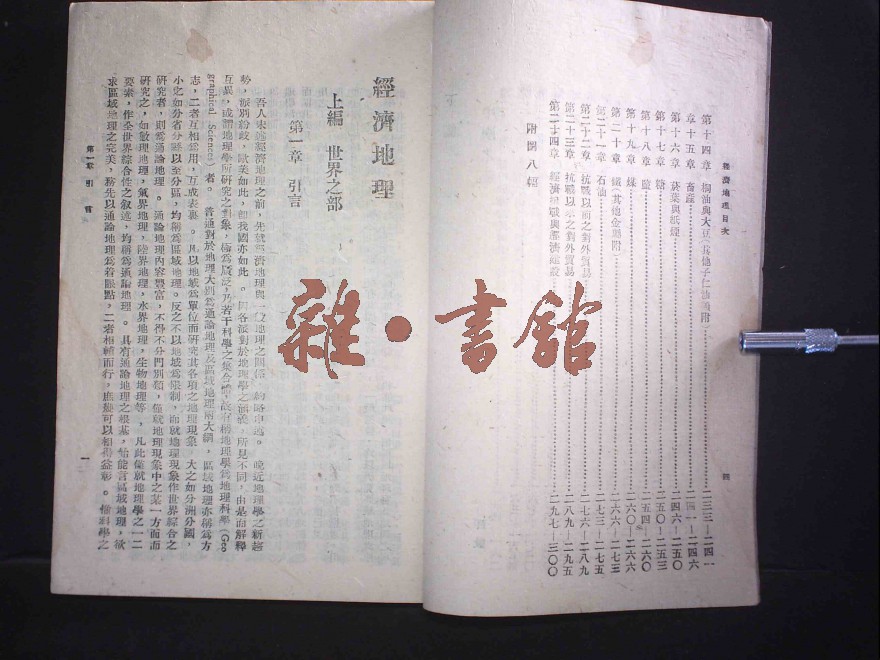 經濟地理目次
第十四章 桐油與大豆(其他子仁油類附)……二三三—二四一
第十五章 畜產……二四一—二四六
第十六章 菸葉與紙煙……二四六—二五〇
第十七章 糖……二五〇—二五三
第十八章 鹽……二五四—二六〇
第十九章 煤……二六〇—二六六
第二十章 鐵(其他金屬附)……二六六—二七三
第二十一章 石油……二七三—二七五
第二十二章 抗戰以前之對外貿易……二七六—二八九
第二十三章 抗戰以來之對外貿易……二八九—二九五
第二十四章 經濟建設……二九七—三〇〇
附圖八幅
四
經濟地理
上編 世界之部
第一章 引言
吾人未述經濟地理之前,先就經濟地理與地理之關係,約略申述。晚近地理學之新趨
勢,派別紛歧,歐美如此,卽我國亦如此。因各派對於地理學之涵義,所見不同,由是而解釋
互異,或謂地理學所研究之對象,極為廣泛,乃若干科學之集合體,故有稱地理學為地理科學(Geo
graphical Sciences)者。普通對於地理大別為通論地理及區域地理兩大綱,區域地理亦稱為方
志,二者互相為用,互成表裏。凡以地域為單位而研究其各項之地理現象,大之如分洲分國,
小之如分省分縣以至分區,均稱為區域地理。反之不以地域為限制,而就地理現象作世界綜合之
研究者,則為通論地理。通論地理內容豐富,不得不分門別類,僅就地理現象中之某一方面而
研究之,如數理地理,氣界地理,陸界地理,水界地理,生物地理等,凡此僅就地理學之一二
要素,作全世界綜合性之敘述,均稱為通論地理。具有通論地理之根基,始能言區域地理,欲
求區域地理之完美,務先以通論地理為着眼點,二者相輔而行,庶幾可以相得益彰。惟科學之
第一章 引言
一
雜·書館